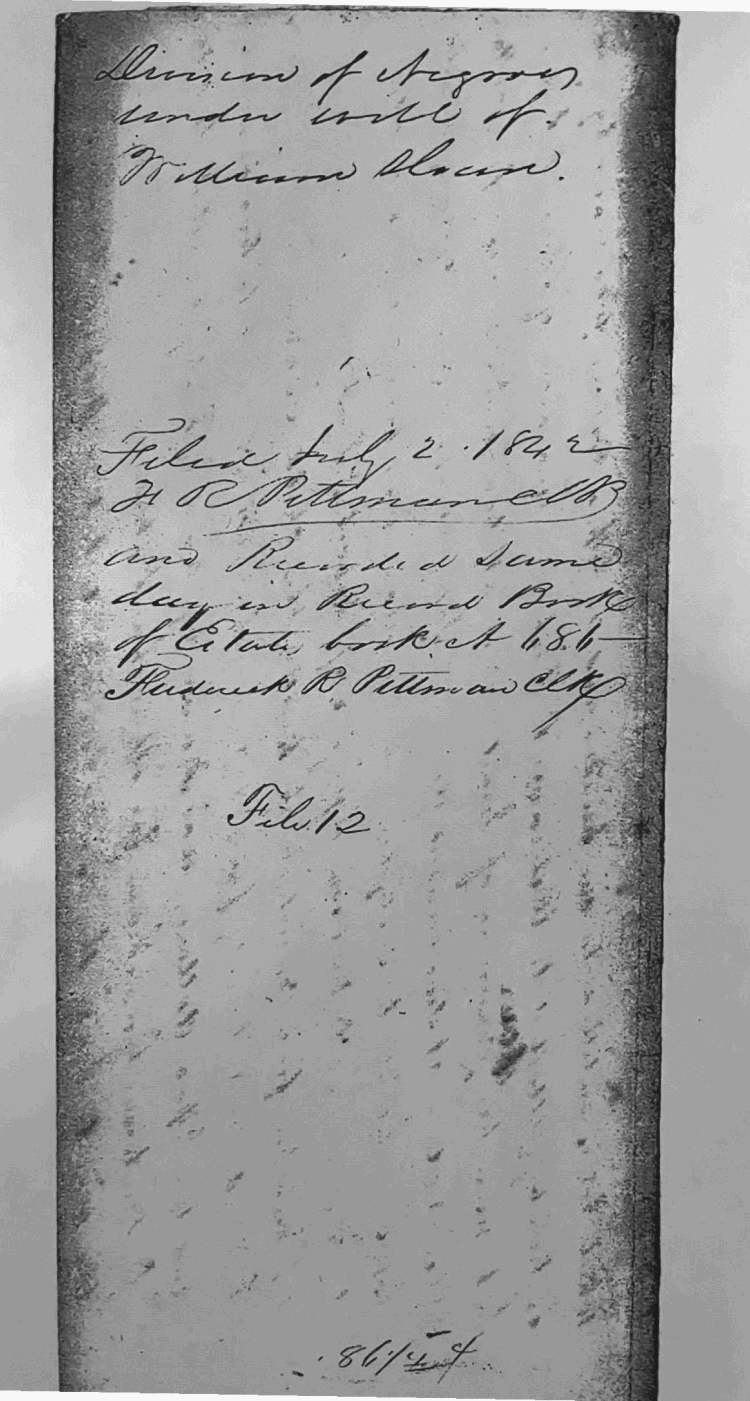 Division of Negroes
under will of
William Sloan.
Filed July 2. 1842
F R Pittman Clk
and Recorded same
day in Record Book
of Estate book A 686
Frederick R Pittman Clk
File 12